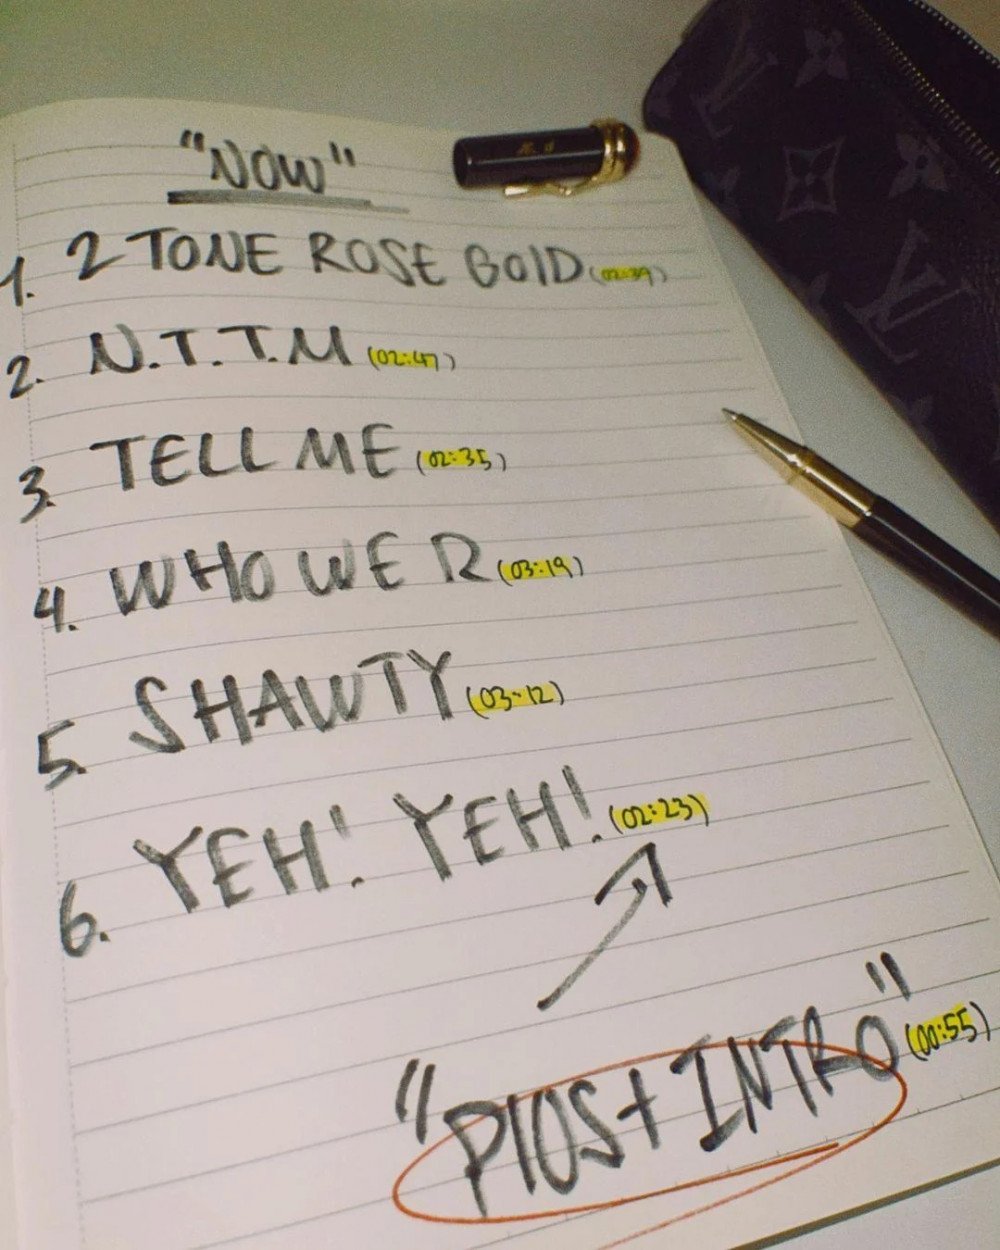 "NOW"
1. 2 TONE ROSE GOlD (02:39)
2. N.T.T.M (02:47)
3. TELL ME (02:35)
4. WHO WE R (03:19)
5. SHAWTY (03:12)
6. YEH! YEH! (02:23)
"PlOS+ INTRO" (00:55)
LV
LV